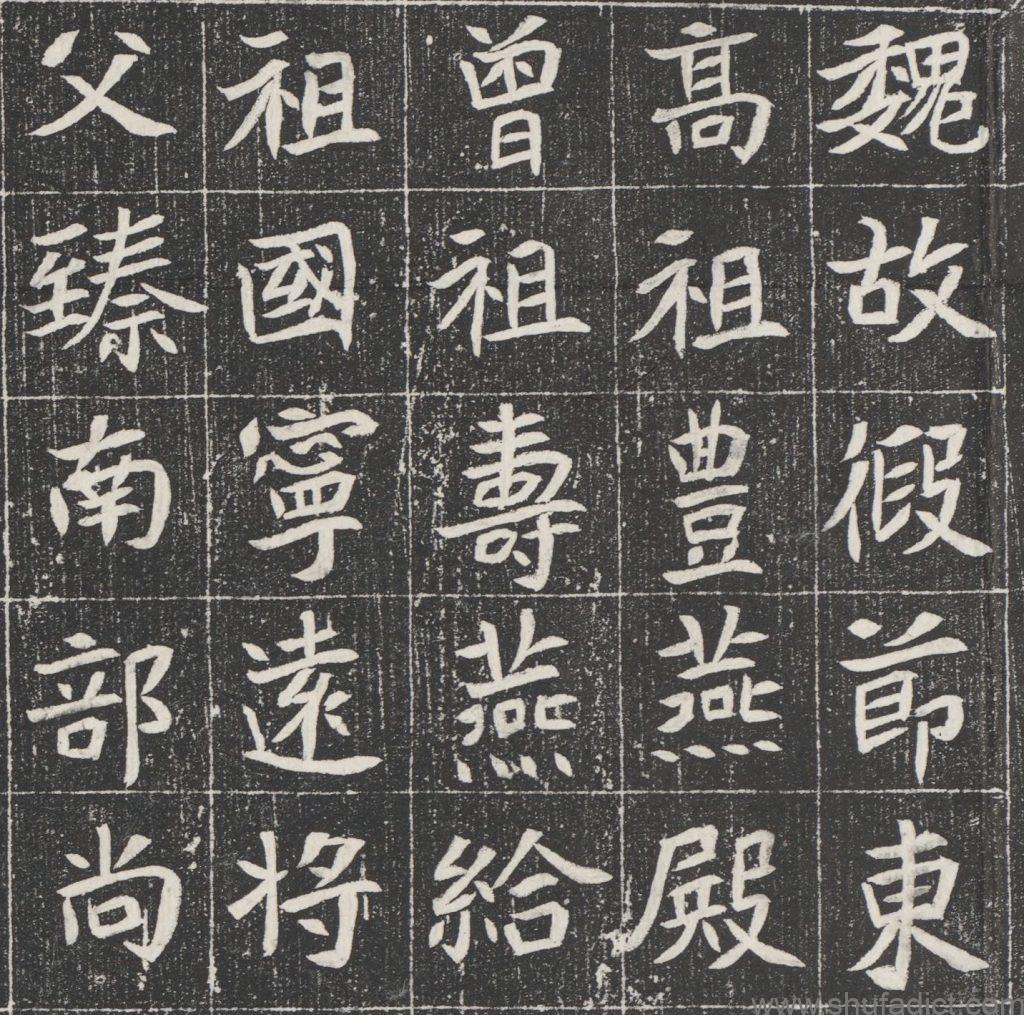 魏故假節東
高祖豊燕殿
曾祖壽燕給
祖國寧遠将
父臻南部尚
www.shufadict.com